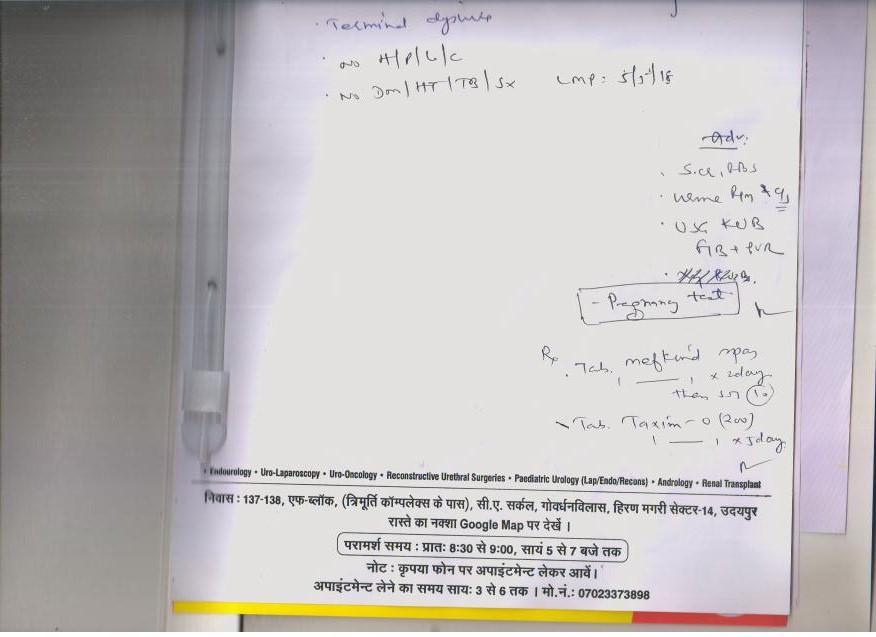 · Terminal dysuria
· No H/P/L/C
· No Dm/HT/TB/Sx LMP: 5/
Adv:
· S.Cr, RBS
· Urine R/m & C/s
· USG KUB
FB + PVR
- Pregnancy test
Rx
· Tab. meftkind spas
1 —— 1 x 2day
then SOS (10)
- Tab. Taxim-O (200)
1 —— 1 x 5day
• Endourology • Uro-Laparoscopy • Uro-Oncology • Reconstructive Urethral Surgeries • Paediatric Urology (Lap/Endo/Recons) • Andrology • Renal Transplant
निवास : 137-138, एफ-ब्लॉक, (त्रिमूर्ति कॉम्पलेक्स के पास), सी.ए. सर्कल, गोवर्धनविलास, हिरण मगरी सेक्टर-14, उदयपुर
रास्ते का नक्शा Google Map पर देखें ।
परामर्श समय : प्रातः 8:30 से 9:00, सायं 5 से 7 बजे तक
नोट : कृपया फोन पर अपाइंटमेन्ट लेकर आवें।
अपाइंटमेन्ट लेने का समय सायः 3 से 6 तक । मो.नं.: 07023373898